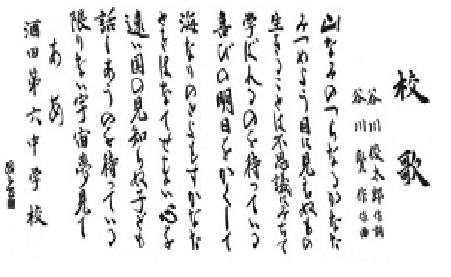 校歌
谷川俊太郎作詞
谷川賢作作曲
山なみのつらなるかなた
みつめよう目に見えぬもの
生きることは不思議にみちて
学ばれるのを待っている
喜びの明日をかくして
海なりのとよもすかなた
遠い国の見知らぬ子ども
話しあうのを待っている
限りない宇宙夢見て
ああ
酒田第六中学校